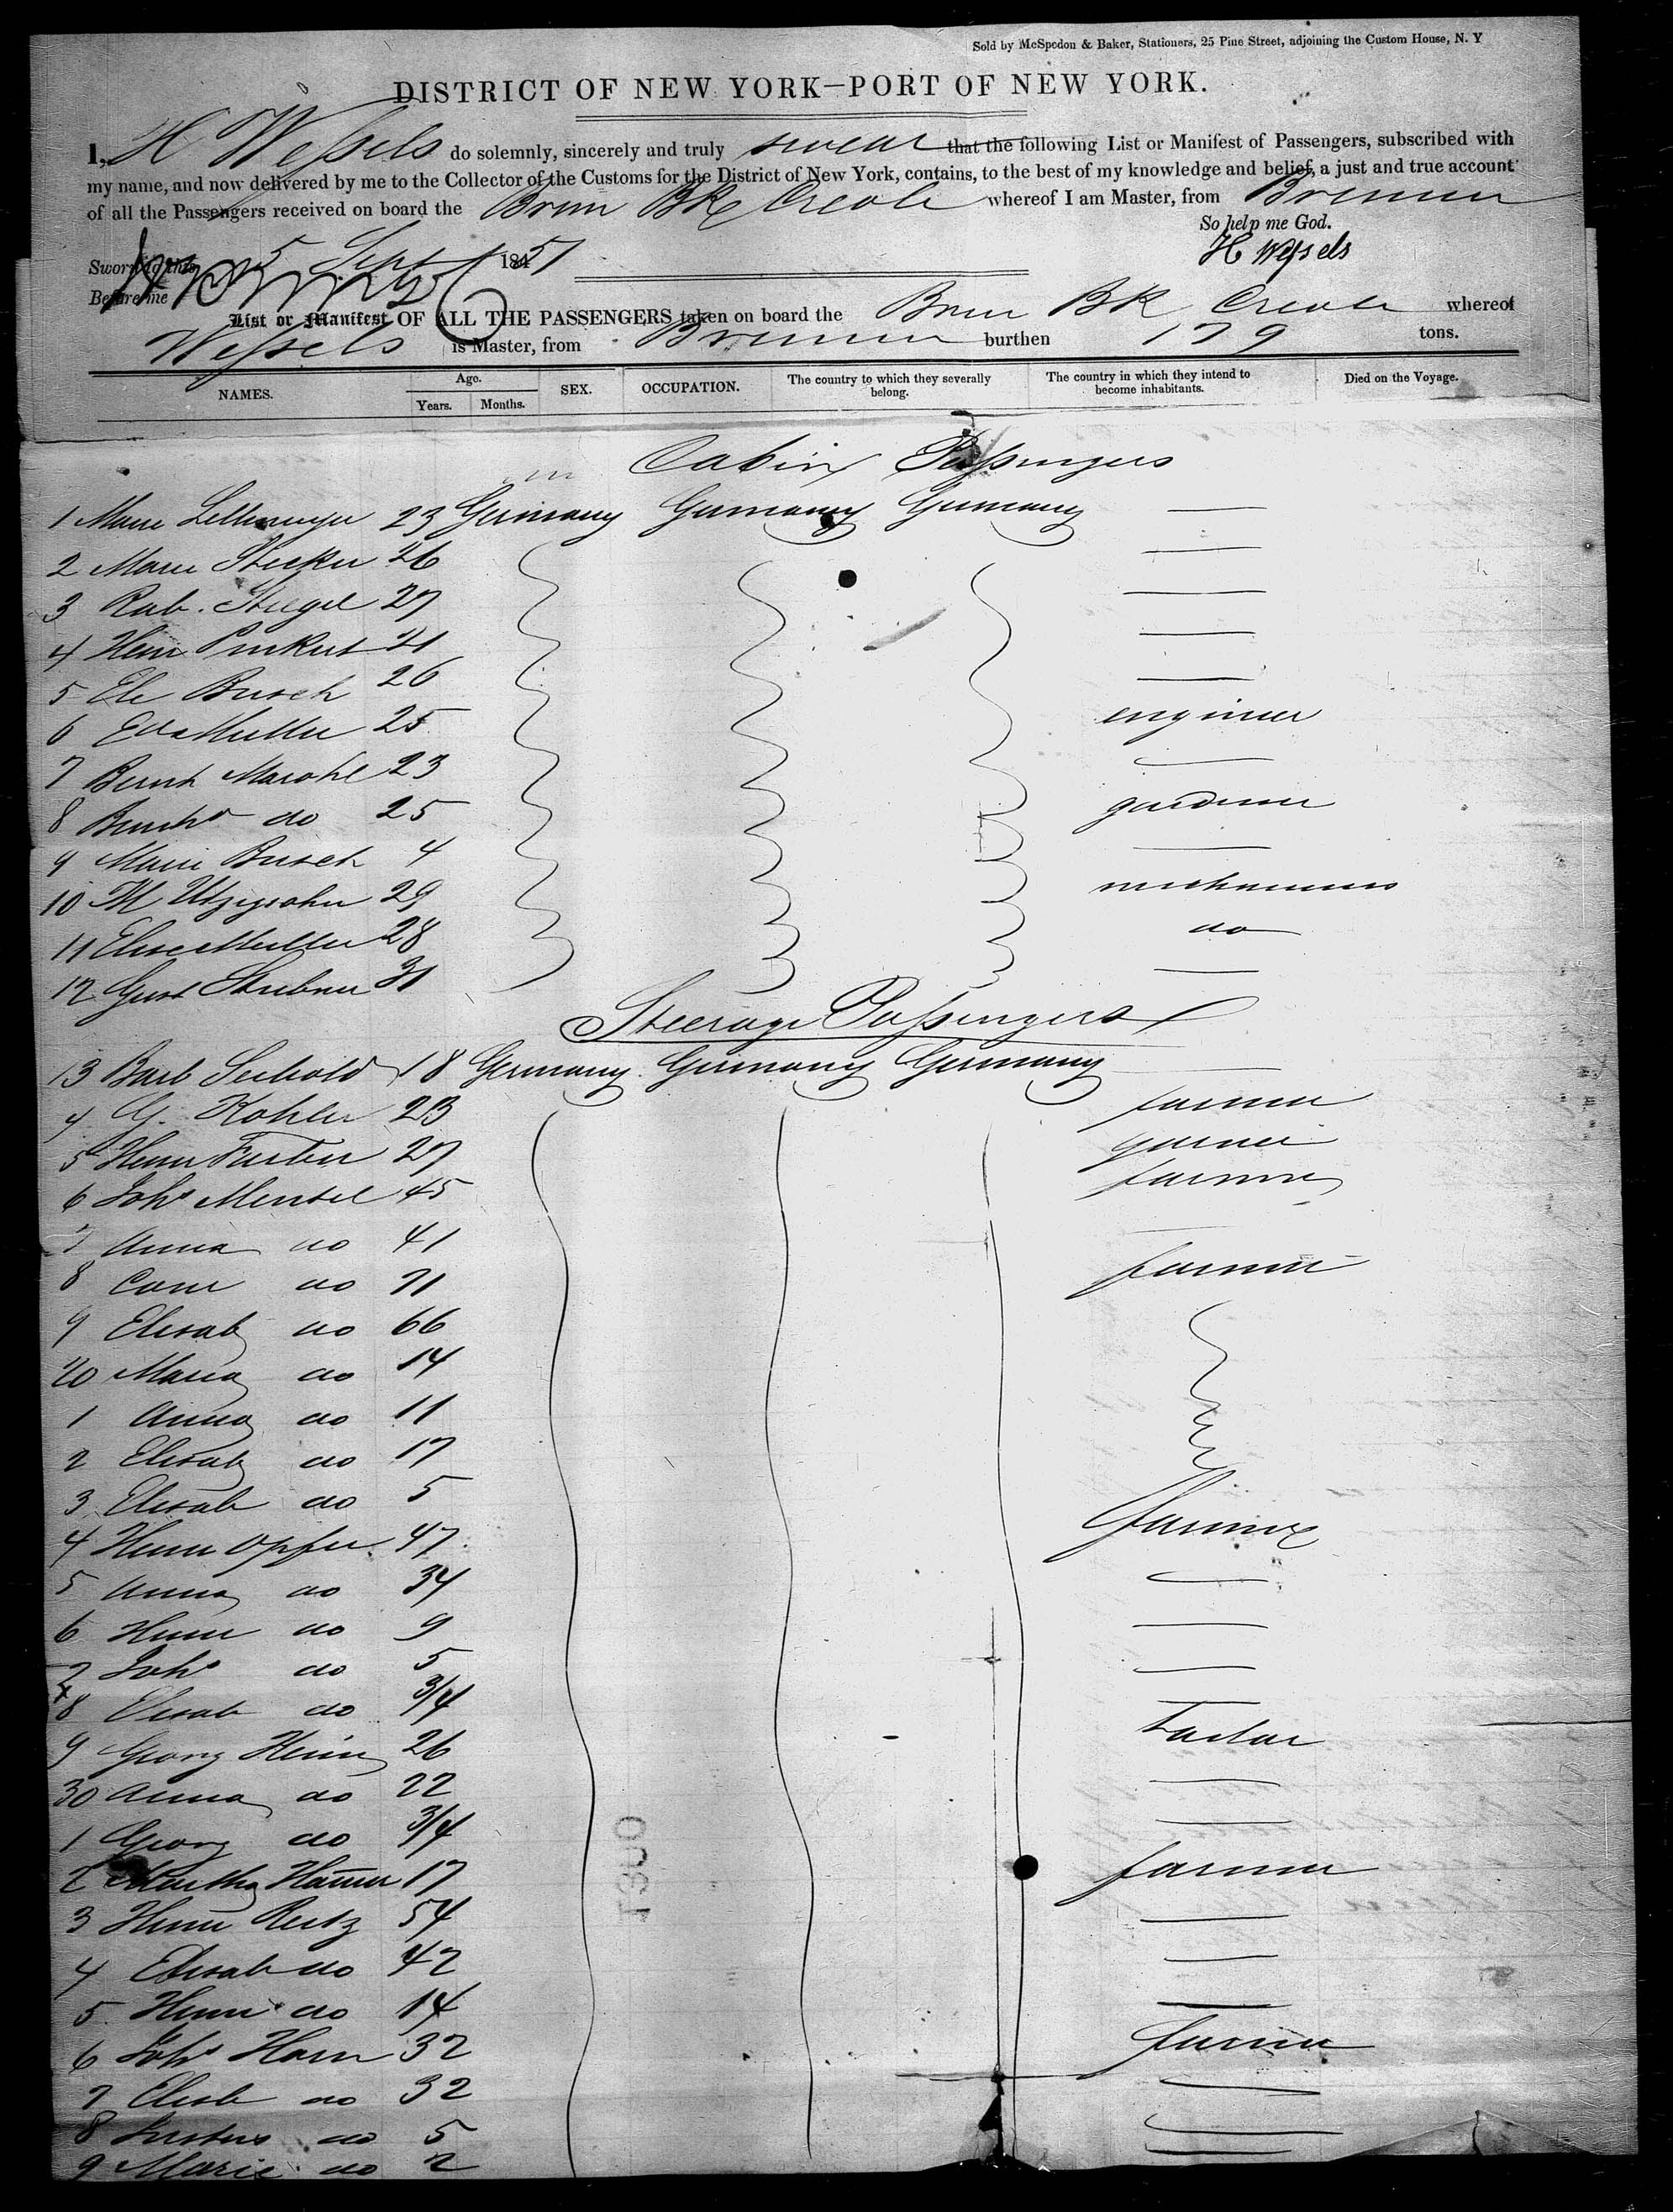 Sold by McSpedon & Baker, Stationers, 25 Pine Street, adjoining the Custom House, N. Y
DISTRICT OF NEW YORK—PORT OF NEW YORK.
I, H Wessels do solemnly, sincerely and truly swear that the following List or Manifest of Passengers, subscribed with
my name, and now delivered by me to the Collector of the Customs for the District of New York, contains, to the best of my knowledge and belief, a just and true account
of all the Passengers received on board the Brem BK Creole whereof I am Master, from Bremen
So help me God.
Sworn to this 5 Sept 1851 H Wessels
Before me
List or Manifest OF ALL THE PASSENGERS taken on board the Brem BK Creole whereof
Wessels is Master, from Bremen burthen 179 tons.
NAMES. Age. Years. Months. SEX. OCCUPATION. The country to which they severally belong. The country in which they intend to become inhabitants. Died on the Voyage.
Cabin Passengers
1 Marie 23 Germany Germany Germany —
2 Marie Stecker 26 —
3 Rab. Stiegel 27 —
4 Heinr 21 —
5 Ele Busch 26 —
6 Eva Muller 25 engineer
7 Marohl 23 —
8 do 25 gardener
9 Marie Busch 4 —
10 M 29
11 Elise Muller 28 do
12 Gust Stubner 31 —
Steerage Passengers
13 Barb Seibold 18 Germany Germany Germany —
4 G. Kohler 23 farmer
5 Henr 27
6 Johs Mentel 45 farmer
7 Anna do 41
8 do 71 farmer
9 Elisab do 66
20 Maria do 14
1 Anna do 11
2 Elisab do 17
3 Elisab do 5
4 Henr Opfer 47 farmer
5 Anna do 34 —
6 Henr do 9 —
7 Johs do 5 —
8 Elisab do 3/4 —
9 Georg Heim 26 Tailor
30 Anna do 22 —
1 Georg do 3/4 —
2 Martha Hamer 17 farmer
3 Henr Reitz 54 —
4 Elisab do 42 —
5 Henr do 14 —
6 Johs Horn 32 farmer
7 Elisb do 32 —
8 Justus do 5 —
9 Marie do 2 —
1300